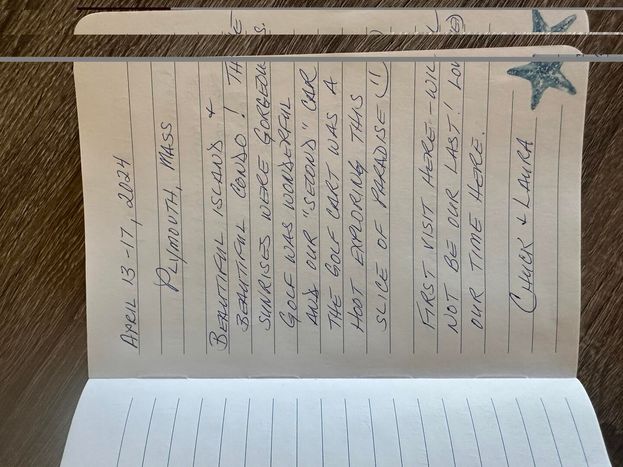 APRIL 13-17, 2024
PLYMOUTH, MASS
BEAUTIFUL ISLAND &
BEAUTIFUL CONDO! THE
SUNRISES WERE GORGEOUS.
GOLF WAS WONDERFUL
AND OUR "SECOND" CAR
THE GOLF CART WAS A
HOOT EXPLORING THIS
SLICE OF PARADISE
FIRST VISIT HERE - WILL
NOT BE OUR LAST! LOVED
OUR TIME HERE.
CHUCK & LAURA